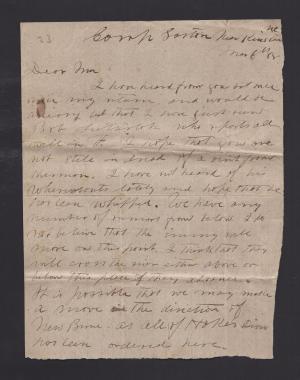 33
Camp Gaston Near Kinston NC
Dear Ma
I have heard from you but once
since my return and would be
uneasy but that I have just seen
who reports all
well in the I hope that you are
not still in dread of a visit from
Sherman. I have not heard of his
whereabouts lately and hope that he
has been whipped. We have any
number of rumors from below. I do
not believe that the enemy will
move on this point. I think that they
will cross the river either above or
below this place if they advance.
It is possible that we may make
a move in the direction of
New Berne as all of Hokes Divn
has been ordered here.